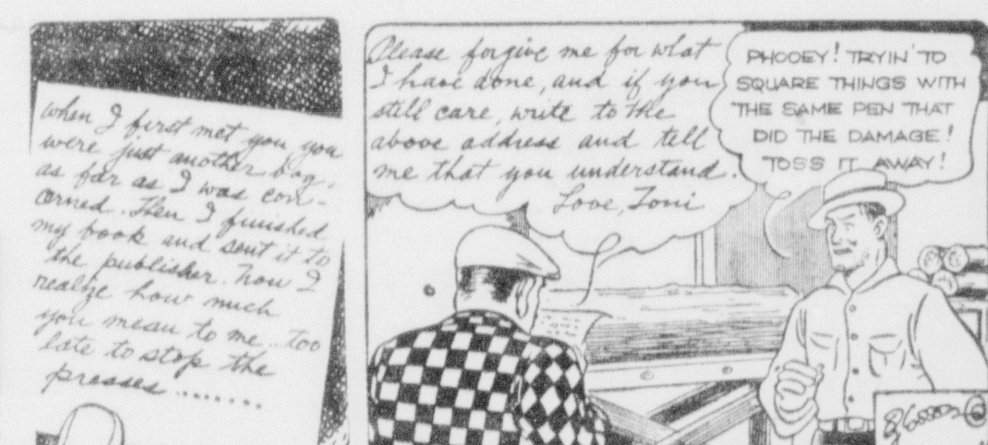 when I first met you you
were just another boy,
as far as I was con-
cerned. Then I finished
my book and sent it to
the publisher. Now I
realize how much
you mean to me... too
late to stop the
presses........
Please forgive me for what
I have done, and if you
still care, write to the
above address and tell
me that you understand.
Love, Toni
PHOOEY! TRYIN' TO
SQUARE THINGS WITH
THE SAME PEN THAT
DID THE DAMAGE!
TOSS IT AWAY!